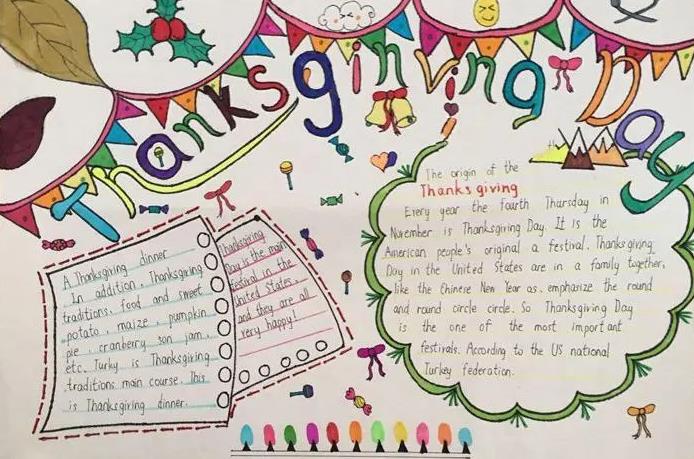 Thanksgiving Day
A Thanksgiving dinner
In addition, Thanksgiving
traditions, food and sweet
potato, maize, pumpkin
pie, cranberry son jam,
etc. Turky is Thanksgiving
traditions main course. This
is Thanksgiving dinner.
Thanksgiving
Day is the main
festival in the
United States,
and they are all
very happy!
The origin of the
Thanks giving
Every year the fourth Thursday in
November is Thanksgiving Day. It is the
American people's original a festival. Thanksgiving
Day in the United States are in a family together,
like the Chinese New Year as. emphasize the round
and round circle circle. So Thanksgiving Day
is the one of the most important
festivals. According to the US national
Turkey federation.